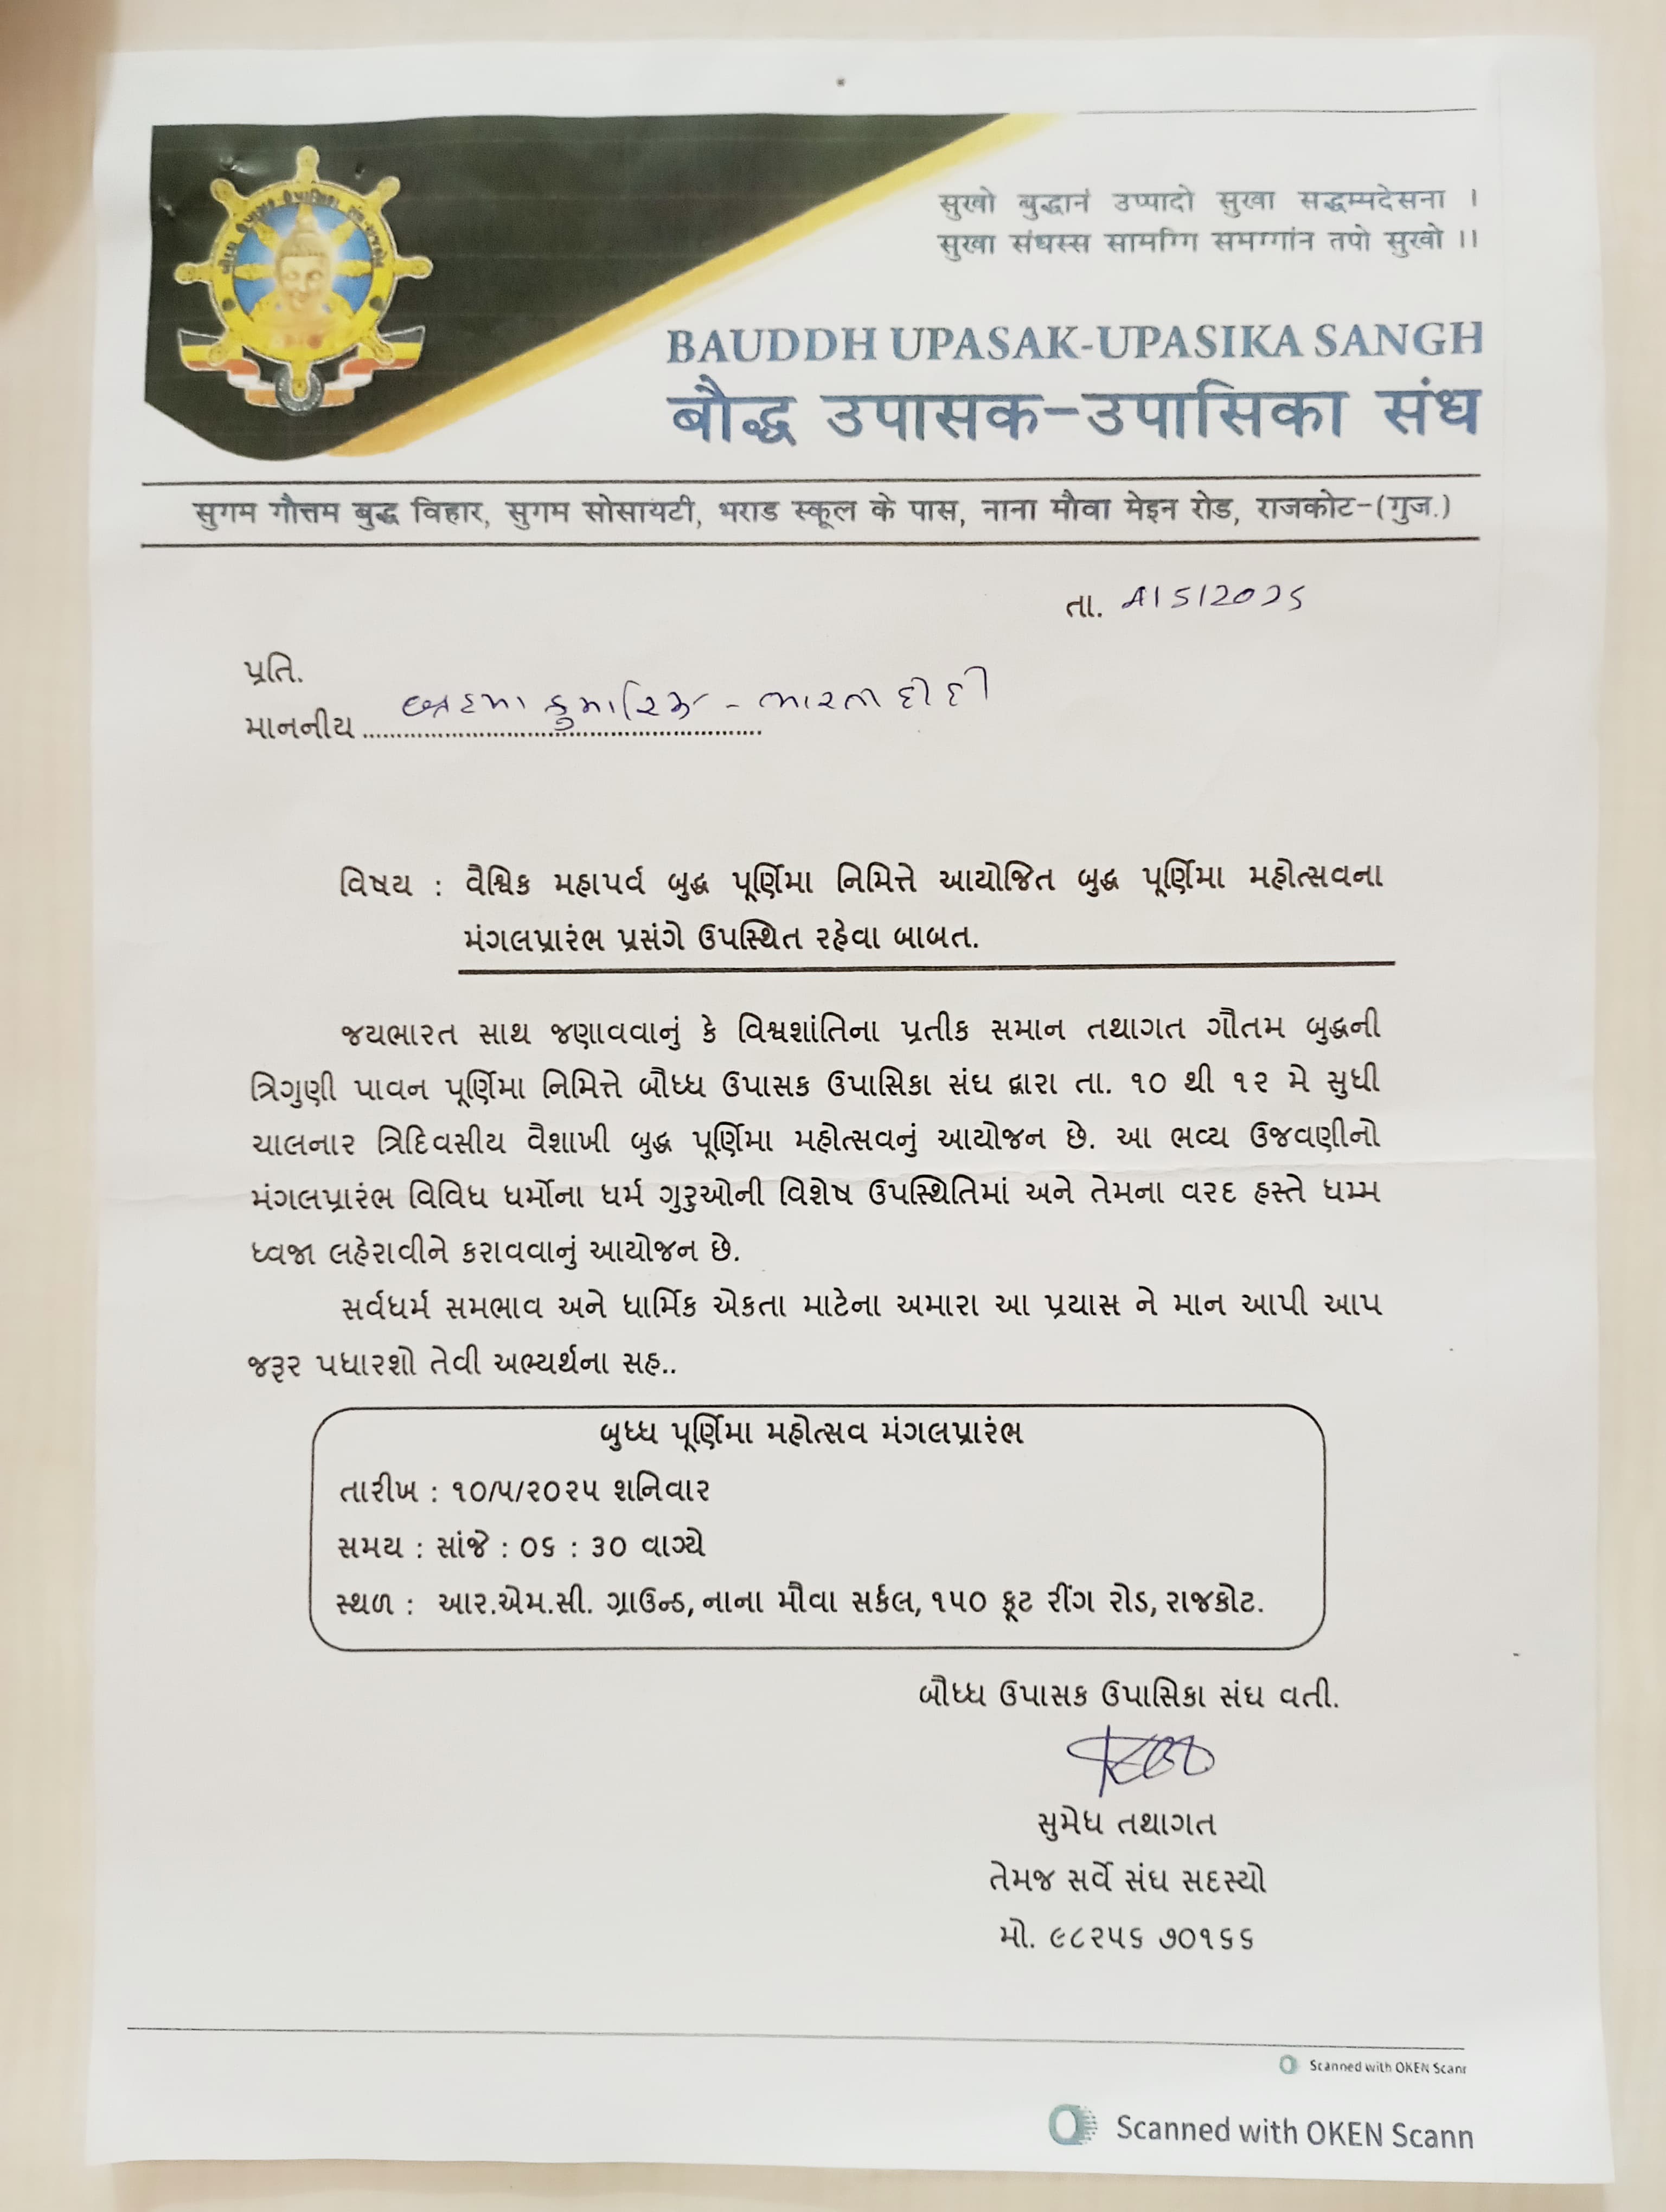 सुखो बुद्धानं उप्पादो सुखा सद्धम्मदेसना ।
सुखा संघस्स सामग्गि समग्गांन तपो सुखो ।।
BAUDDH UPASAK-UPASIKA SANGH
बौद्ध उपासक-उपासिका संघ
सुगम गौत्तम बुद्ध विहार, सुगम सोसायटी, भराड स्कूल के पास, नाना मौवा मेइन रोड, राजकोट-(गुज.)
તા. /5/2025
પ્રતિ.
માનનીય કુમારિ - ભારતી દીદી
વિષય : વૈશ્વિક મહાપર્વ બુદ્ધ પૂર્ણિમા નિમિત્તે આયોજિત બુદ્ધ પૂર્ણિમા મહોત્સવના
મંગલપ્રારંભ પ્રસંગે ઉપસ્થિત રહેવા બાબત.
જયભારત સાથ જણાવવાનું કે વિશ્વશાંતિના પ્રતીક સમાન તથાગત ગૌતમ બુદ્ધની
ત્રિગુણી પાવન પૂર્ણિમા નિમિત્તે બૌધ્ધ ઉપાસક ઉપાસિકા સંઘ દ્વારા તા. ૧૦ થી ૧૨ મે સુધી
ચાલનાર ત્રિદિવસીય વૈશાખી બુદ્ધ પૂર્ણિમા મહોત્સવનું આયોજન છે. આ ભવ્ય ઉજવણીનો
મંગલપ્રારંભ વિવિધ ધર્મોના ધર્મ ગુરુઓની વિશેષ ઉપસ્થિતિમાં અને તેમના વરદ હસ્તે ધમ્મ
ધ્વજા લહેરાવીને કરાવવાનું આયોજન છે.
સર્વધર્મ સમભાવ અને ધાર્મિક એકતા માટેના અમારા આ પ્રયાસ ને માન આપી આપ
જરૂર પધારશો તેવી અભ્યર્થના સહ..
બુધ્ધ પૂર્ણિમા મહોત્સવ મંગલપ્રારંભ
તારીખ : ૧૦/૫/૨૦૨૫ શનિવાર
સમય : સાંજે : ૦૬ : ૩૦ વાગ્યે
સ્થળ : આર.એમ.સી. ગ્રાઉન્ડ, નાના મૌવા સર્કલ, ૧૫૦ ફૂટ રીંગ રોડ, રાજકોટ.
બૌધ્ધ ઉપાસક ઉપાસિકા સંઘ વતી.
સુમેધ તથાગત
તેમજ સર્વે સંઘ સદસ્યો
મો. ૯૮૨૫૬ ૭૦૧૬૬
Scanned with OKEN Scanr
Scanned with OKEN Scann